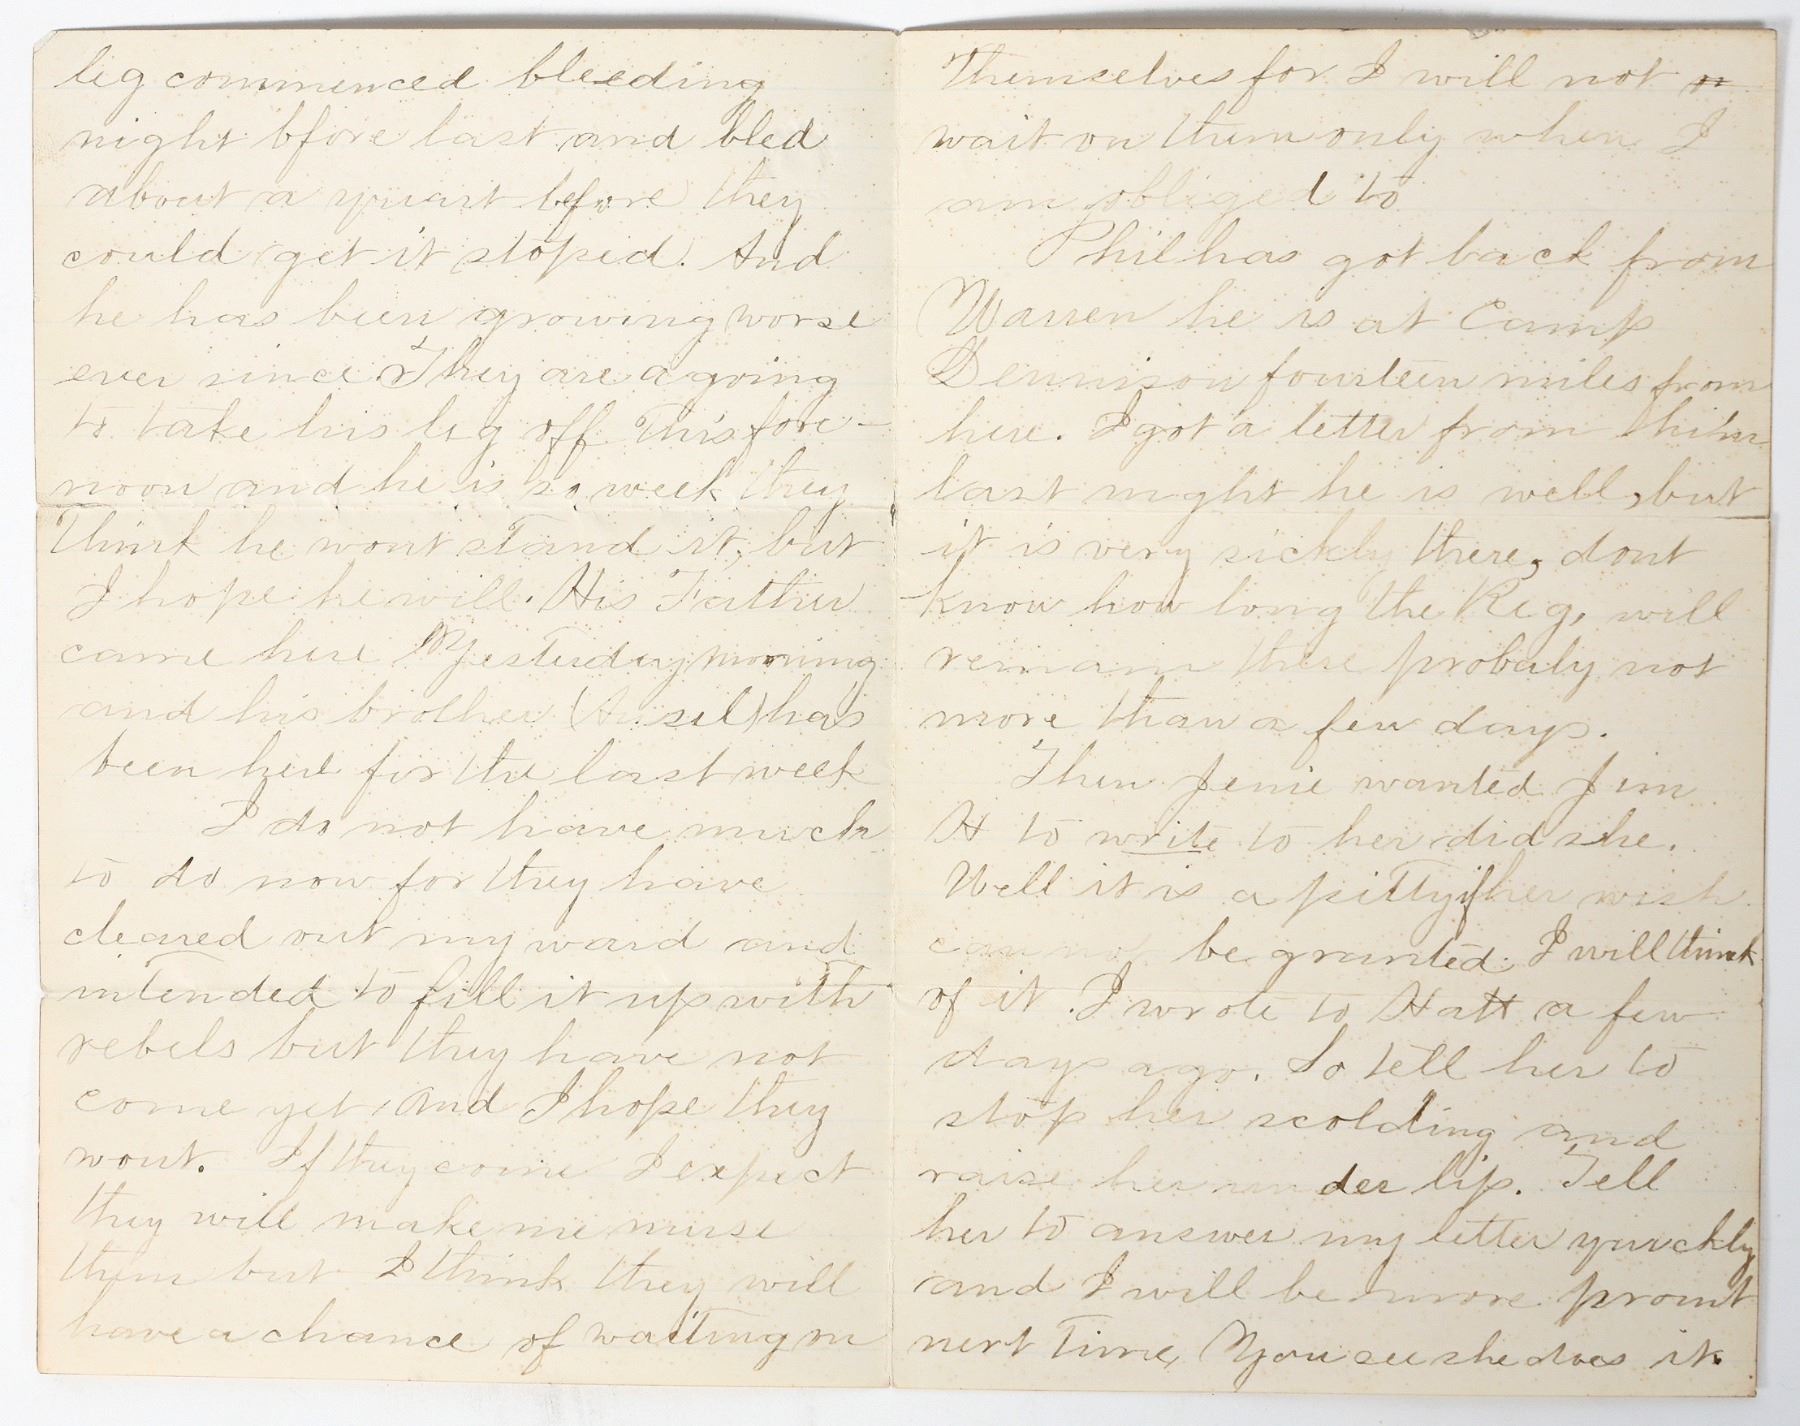 leg commenced bleeding
night bfore last and bled
about a quart before they
could get it stoped. And
he has been growing worse
ever since. They are a going
to take his leg off this fore-
noon and he is so week they
think he wont stand it, but
I hope he will. His Father
came here Yesterday morning
and his brother (Ansel) has
been here for the last week
I do not have much
to do now for they have
cleared out my ward and
intended to fill it up with
rebels but they have not
come yet, and I hope they
wont. If they come I expect
they will make me nurse
them but I think they will
have a chance of waiting on
themselves for I will not n
wait on them only when I
am obliged to
Phil has got back from
Warren he is at Camp
Dennison fourteen miles from
here. I got a letter from him
last night he is well, but
it is very sickly there, dont
know how long the Reg. will
remain there probaly not
more than a few days.
Then Jenie wanted Jim
H to write to her did she.
Well it is a pitty if her wish
cannot be granted. I will think
of it. I wrote to Hatt a few
days ago. So tell her to
stop her scolding and
raise her under lip. Tell
her to answer my letter quickly
and I will be more promt
next time, You see she does it